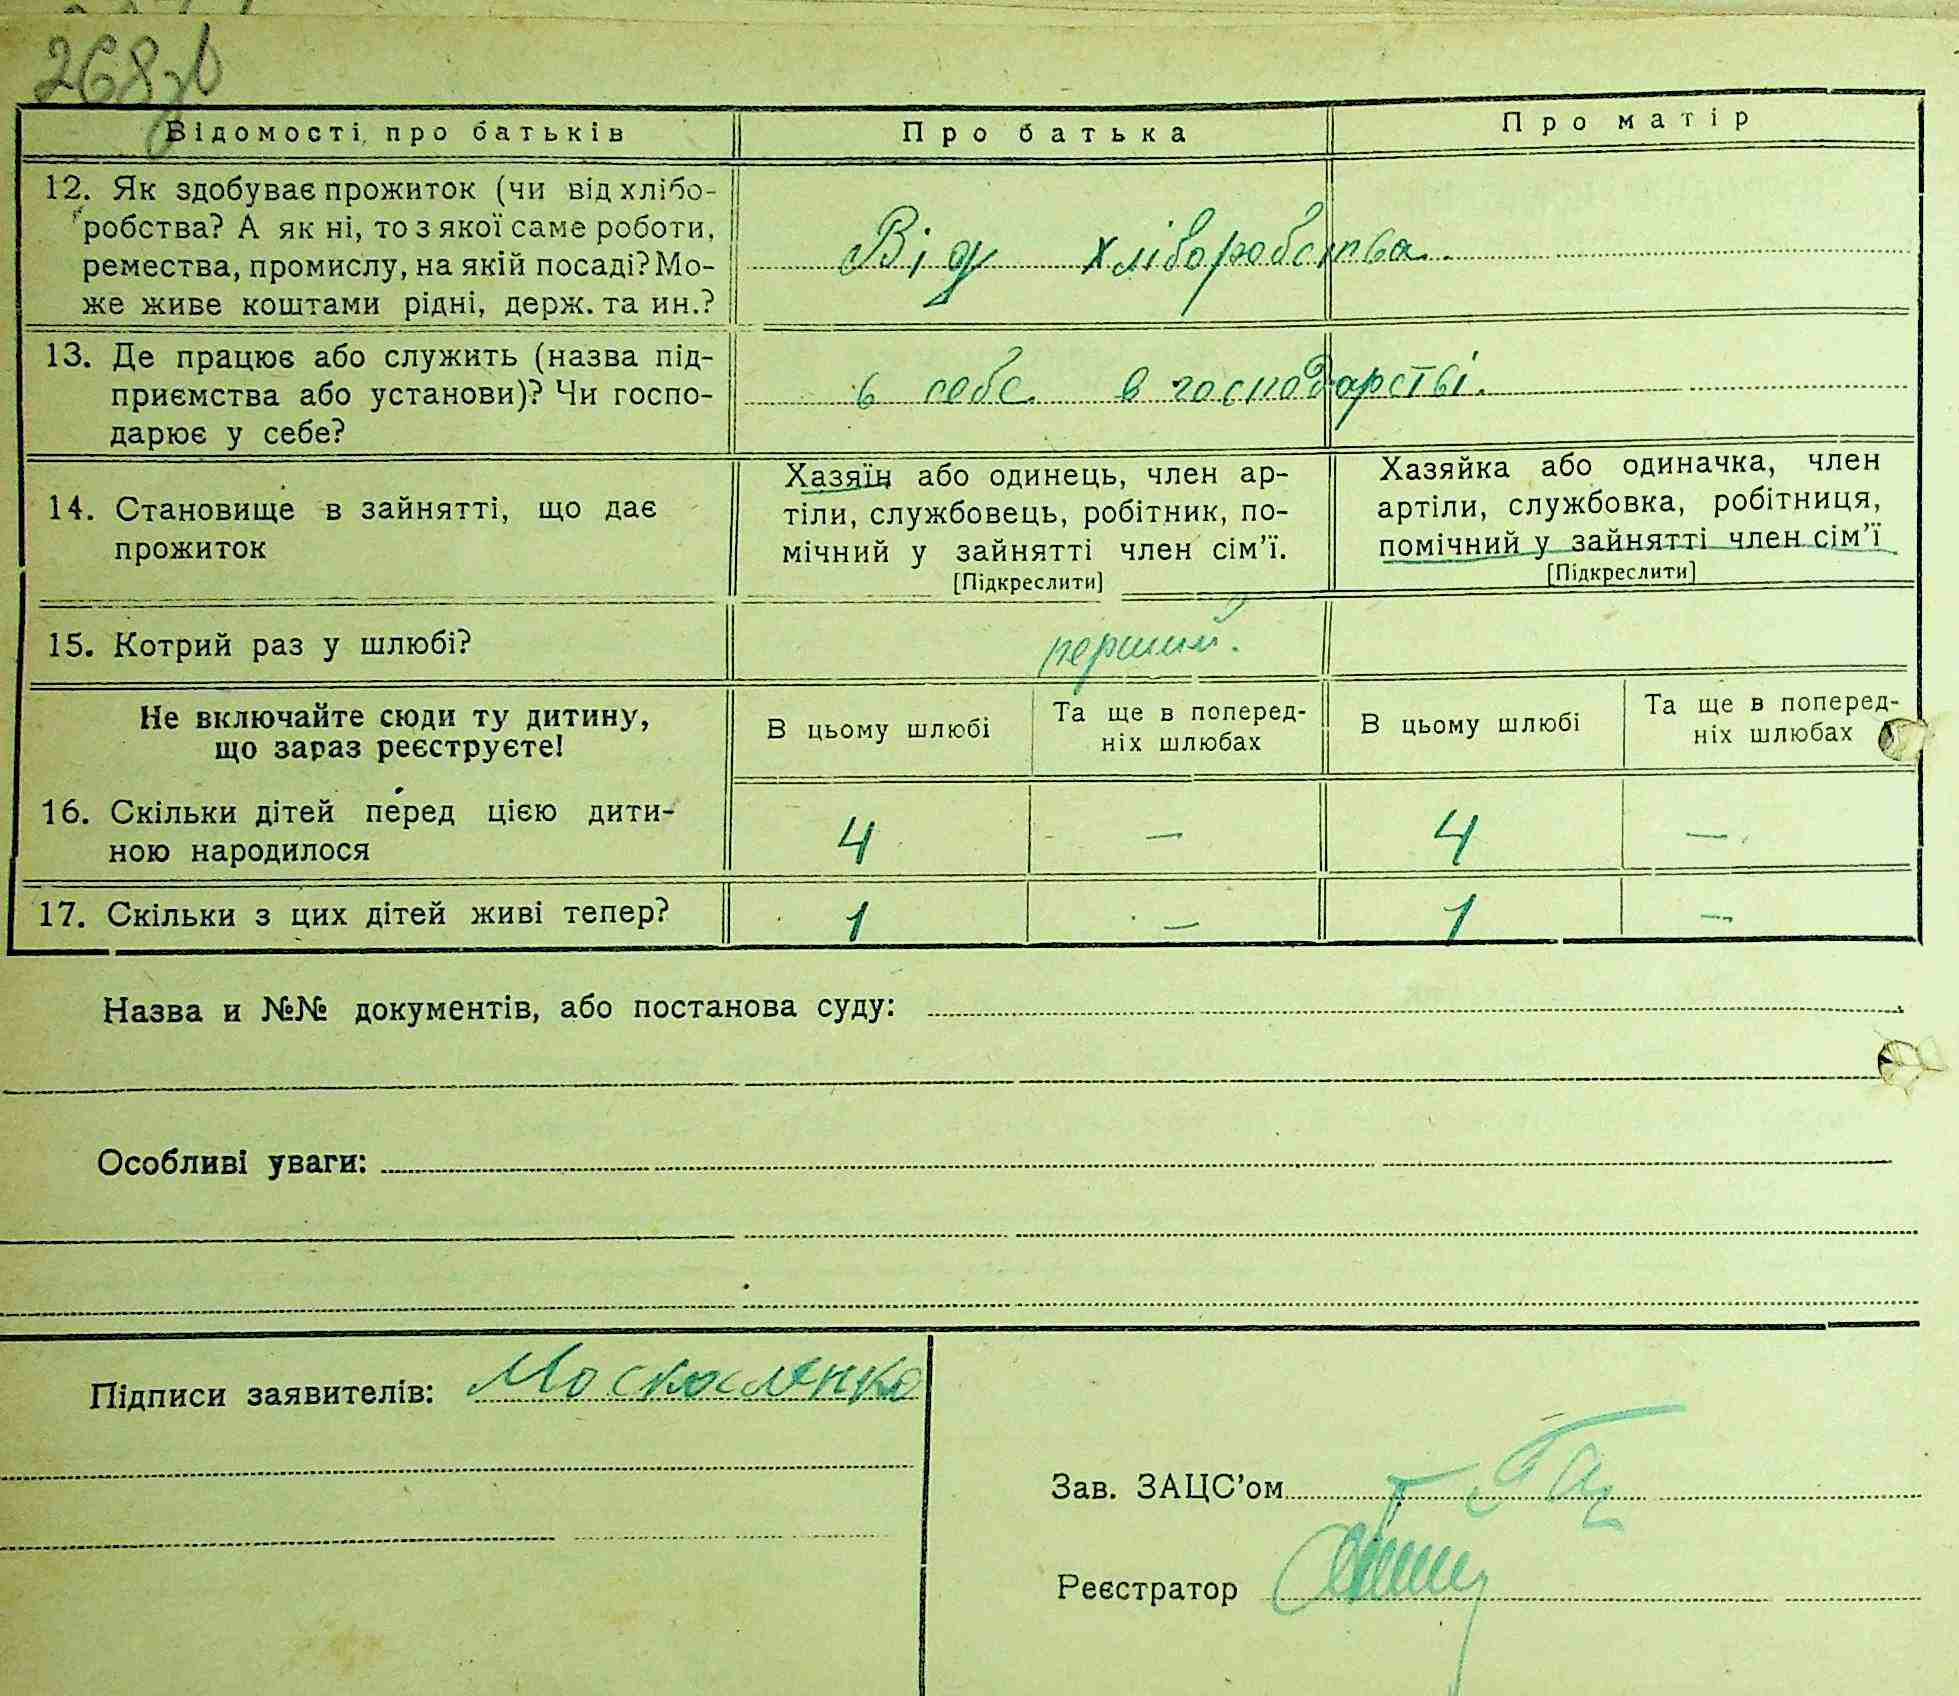 268зв
Відомості про батьків Про батька Про матір
12. Як здобуває прожиток (чи від хлібо-
робства? А як ні, то з якої саме роботи,
ремества, промислу, на якій посаді? Мо-
же живе коштами рідні, держ. та ин.?
Від хліборобства.
13. Де працює або служить (назва під-
приємства або установи)? Чи госпо-
дарює у себе?
в себе в господарстві.
14. Становище в зайнятті, що дає
прожиток
Хазяїн або одинець, член ар-
тіли, службовець, робітник, по-
мічний у зайнятті член сім'ї.
[Підкреслити]
Хазяйка або одиначка, член
артіли, службовка, робітниця,
помічний у зайнятті член сім'ї
[Підкреслити]
15. Котрий раз у шлюбі? перший.
Не включайте сюди ту дитину,
що зараз реєструєте!
В цьому шлюбі
Та ще в поперед-
ніх шлюбах
В цьому шлюбі
Та ще в поперед-
ніх шлюбах
16. Скільки дітей перед цією дити-
ною народилося
4 — 4 —
17. Скільки з цих дітей живі тепер? 1 — 1 —
Назва и №№ документів, або постанова суду:
Особливі уваги:
Підписи заявителів:
Зав. ЗАЦС'ом
Реєстратор